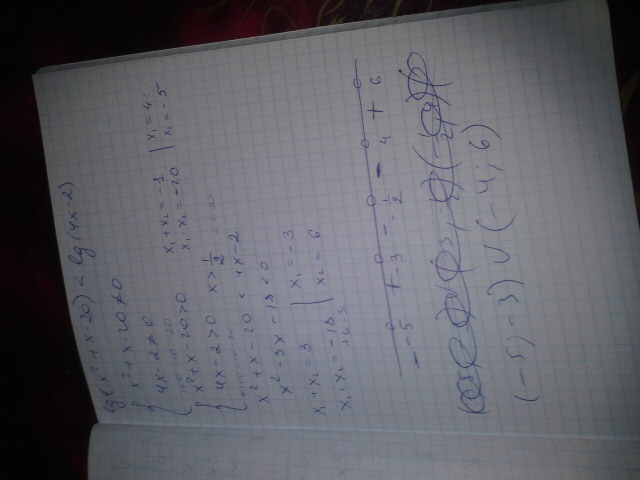 lg(x²+x-20) < lg(4x-2)
{ x²+x-20≠0
4x-2≠0
{ x²+x-20>0 x₁+x₂=-1 | x₁=4
x₁·x₂=-20 | x₂=-5
4x-2>0 x>1/2
x²+x-20 < 4x-2
x²-3x-18<0
x₁+x₂=3 | x₁=-3
x₁·x₂=-18 | x₂=6
- -5 + -3 - -1/2 - 4 + 6
(-5;-3) ∪ (-4;6)